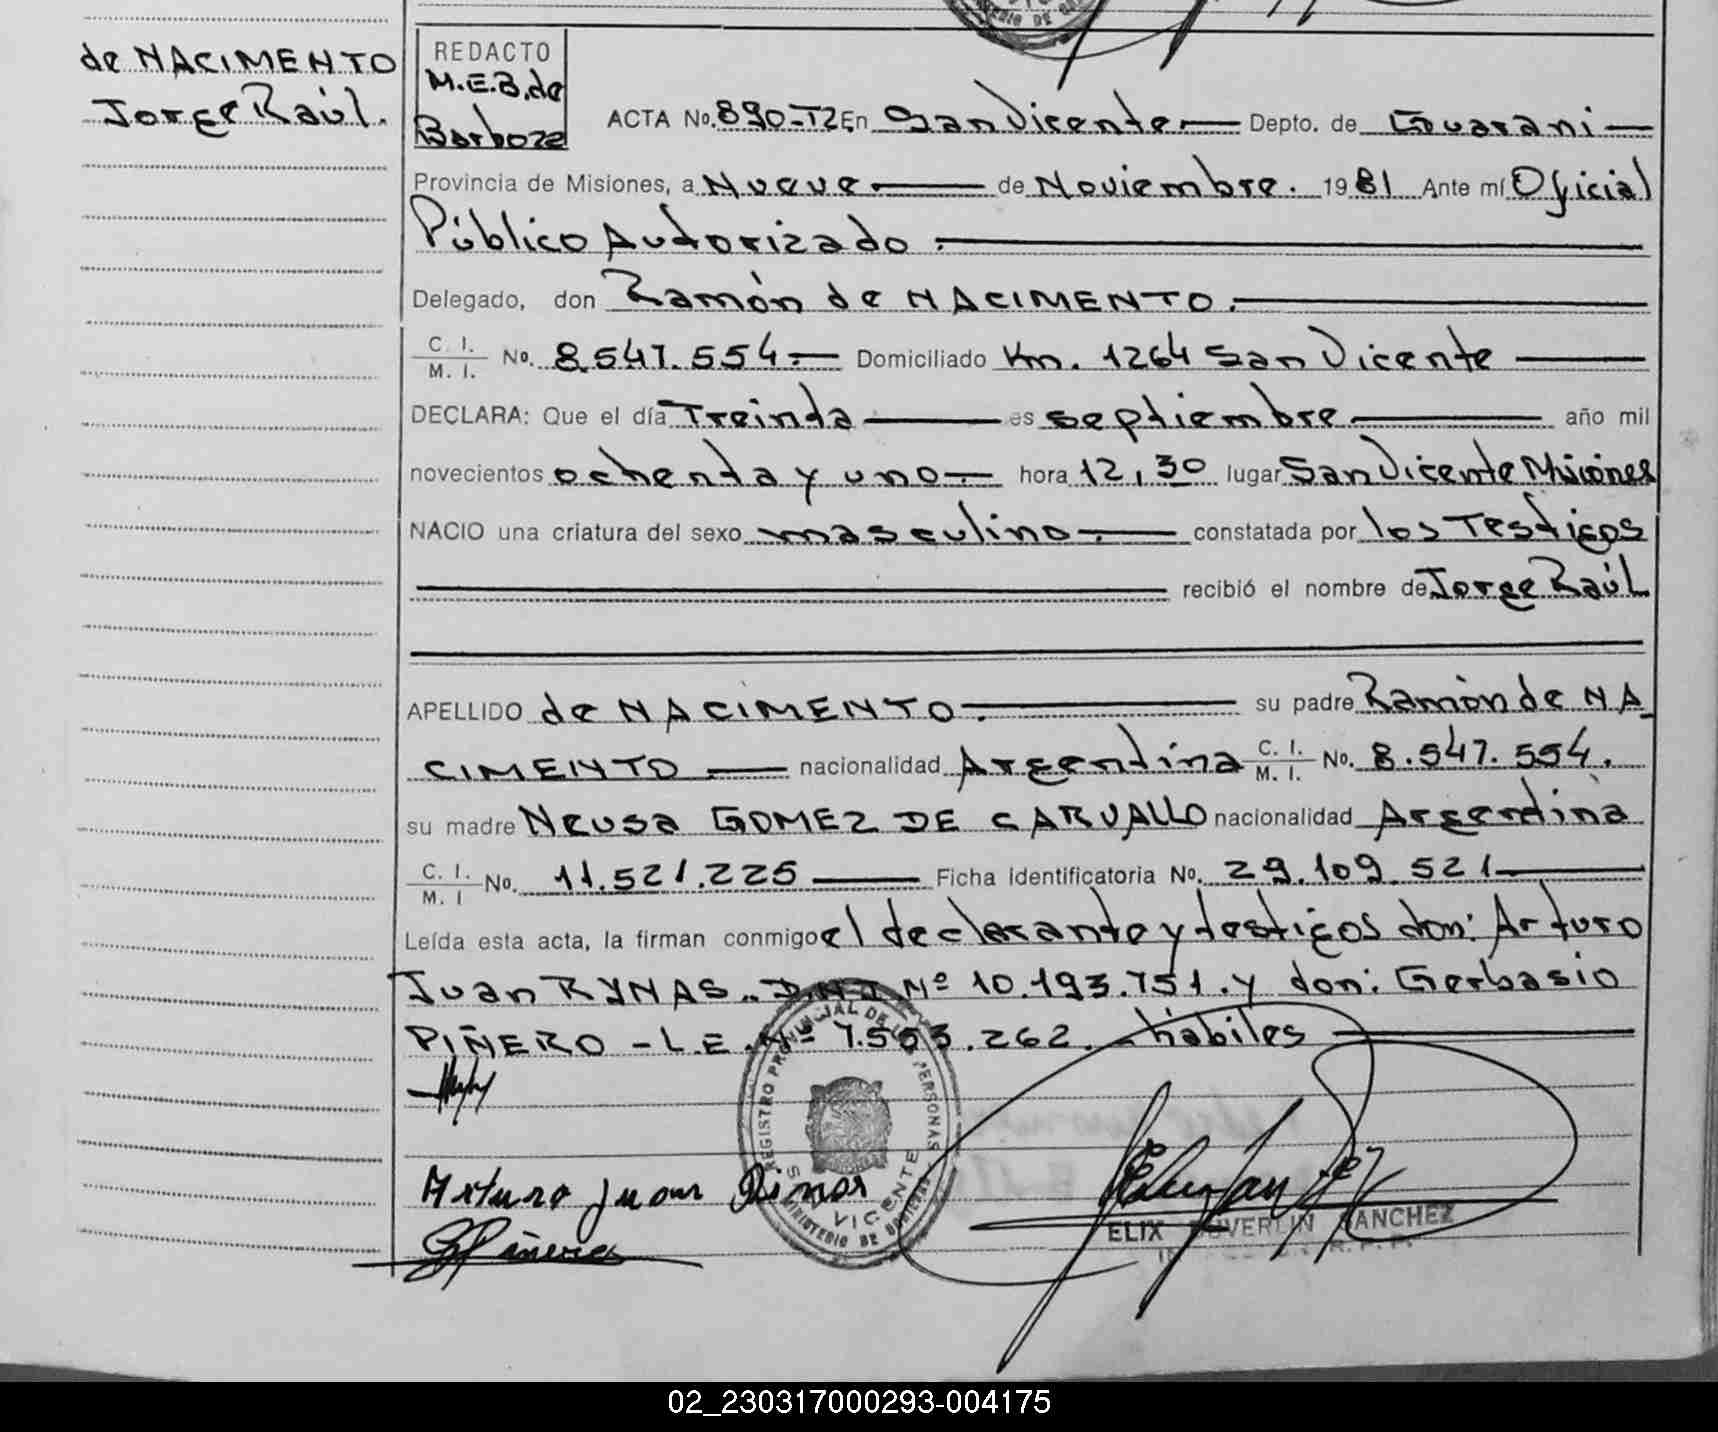 de NACIMENTO
Jorge Raúl.
REDACTO
M.E.B. de
Barboza
ACTA No. 890-T2 En San Vicente Depto. de Guarani
Provincia de Misiones, a Nueve de Noviembre. 1981 Ante mí Oficial
Público Autorizado.
Delegado, don Ramón de NACIMENTO.
C. I.
M. I. No. 8.547.554.- Domiciliado Km. 1264 San Vicente
DECLARA: Que el día Treinta es septiembre año mil
novecientos ochenta y uno.- hora 12,30 lugar San Vicente Misiones
NACIO una criatura del sexo masculino.- constatada por los Testigos
recibió el nombre de Jorge Raúl
APELLIDO de NACIMENTO.- su padre Ramón de NA_
CIMENTO.- nacionalidad Argentina C. I. M. I. No. 8.547.554.
su madre Neusa GOMEZ DE CARVALLO nacionalidad Argentina
C. I.
M. I No. 11.521.225 Ficha Identificatoria No. 29.109.521
Leída esta acta, la firman conmigo el declarante y testigos don: Arturo
Juan RYNAS.. D.N.I. Nº 10.193.751. y don: Gerbasio
PIÑERO - L.E. Nº 7.553.262. hábiles
REGISTRO PROVINCIAL DE LAS PERSONAS
SAN VICENTE
MINISTERIO DE GOBIERNO
Arturo Juan Rinas
G Piñero
ELIX SUVERLIN SANCHEZ
02_230317000293-004175